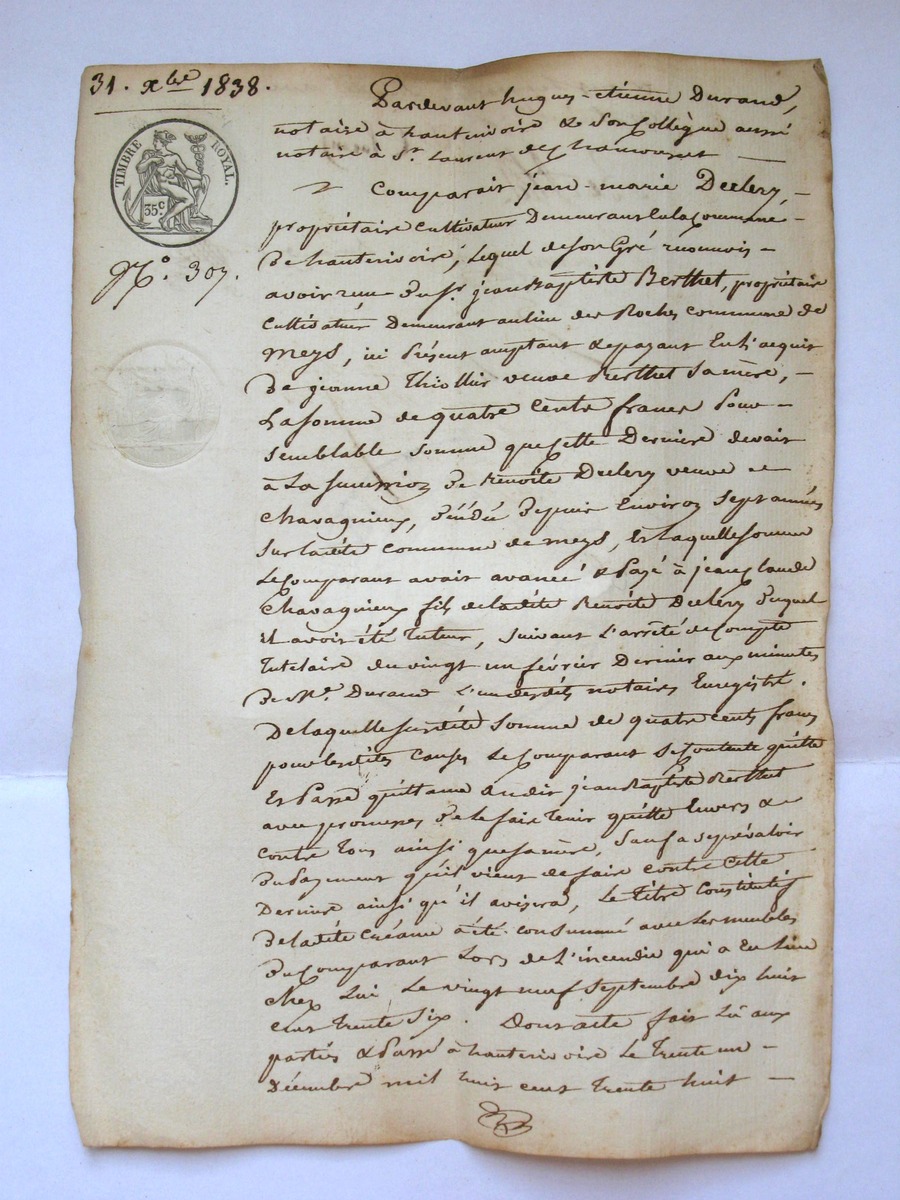 31. xbre 1838.
TIMBRE ROYAL.
35c.
No. 307.
Pardevant hugues-étienne Durand,
notaire à hauterivoire & son Collègue aussi
notaire à St. Laurent de Chamousset
Comparait jean-marie Decléry,
propriétaire cultivateur Demeurant en la Commune
De hauterivoire, lequel de son Gré reconnois
avoir reçu Du Sr. jean Baptiste Berthet, propriétaire
Cultivateur Demeurant au lieu des Roches commune de
Meys, ici Présent acceptant & payant En l'acquit
De jeanne Thiollier veuve Berthet sa mère,
La somme de quatre Cents francs Pour
semblable somme que cette Dernière devait
à La succession De Benoîte Decléry veuve de
Chavagnieux, Décédée Depuis Environ Sept années
sur ladite commune de meys, Et Laquelle somme
le Comparant avait avancé & Payé à jean Claude
Chavagnieux fils de ladite Benoîte Decléry Duquel
Il avoit été Tuteur, suivant L'arrêté de Compte
Tutélaire du vingt un février Dernier aux minutes
De Me. Durand L'un desdits notaires Enregistré.
De laquelle susdite somme de quatre cents francs
pour lesdites Causes le Comparant se Contente quitte
Et Passe quittance audit jean Baptiste Berthet
avec promesses De le faire Tenir quitte Envers &
contre Tous ainsi que sa mère, sauf a se prévaloir
Du Payement qu'il vient de faire contre Cette
Dernière ainsi qu'il avisera, Le Titre Constitutif
De ladite Créance a été consummé avec les meubles
Du Comparant Lors de L'incendie qui a Eu Lieu
Chez Lui, le vingt neuf Septembre dix huit
Cent Trente Six. Dont acte fait Lû aux
parties & Passé à hauterivoire Le Trente un
Décembre mil huit cent Trente huit